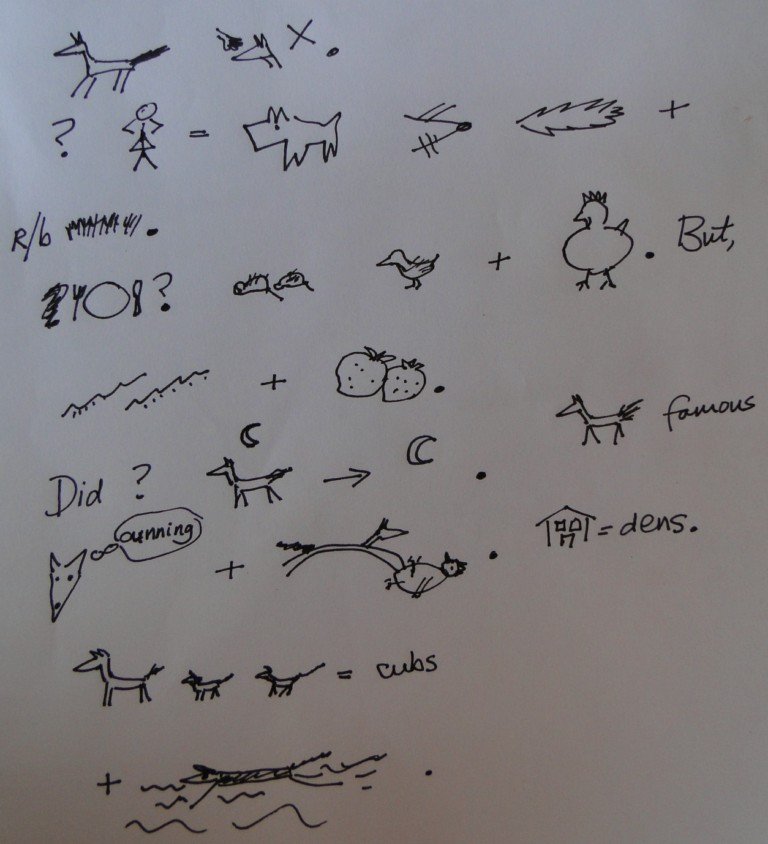 X.
? = +
R/b .
? + . But,
+ .
famous
Did ? → .
cunning
+ . = dens.
= cubs
+ .